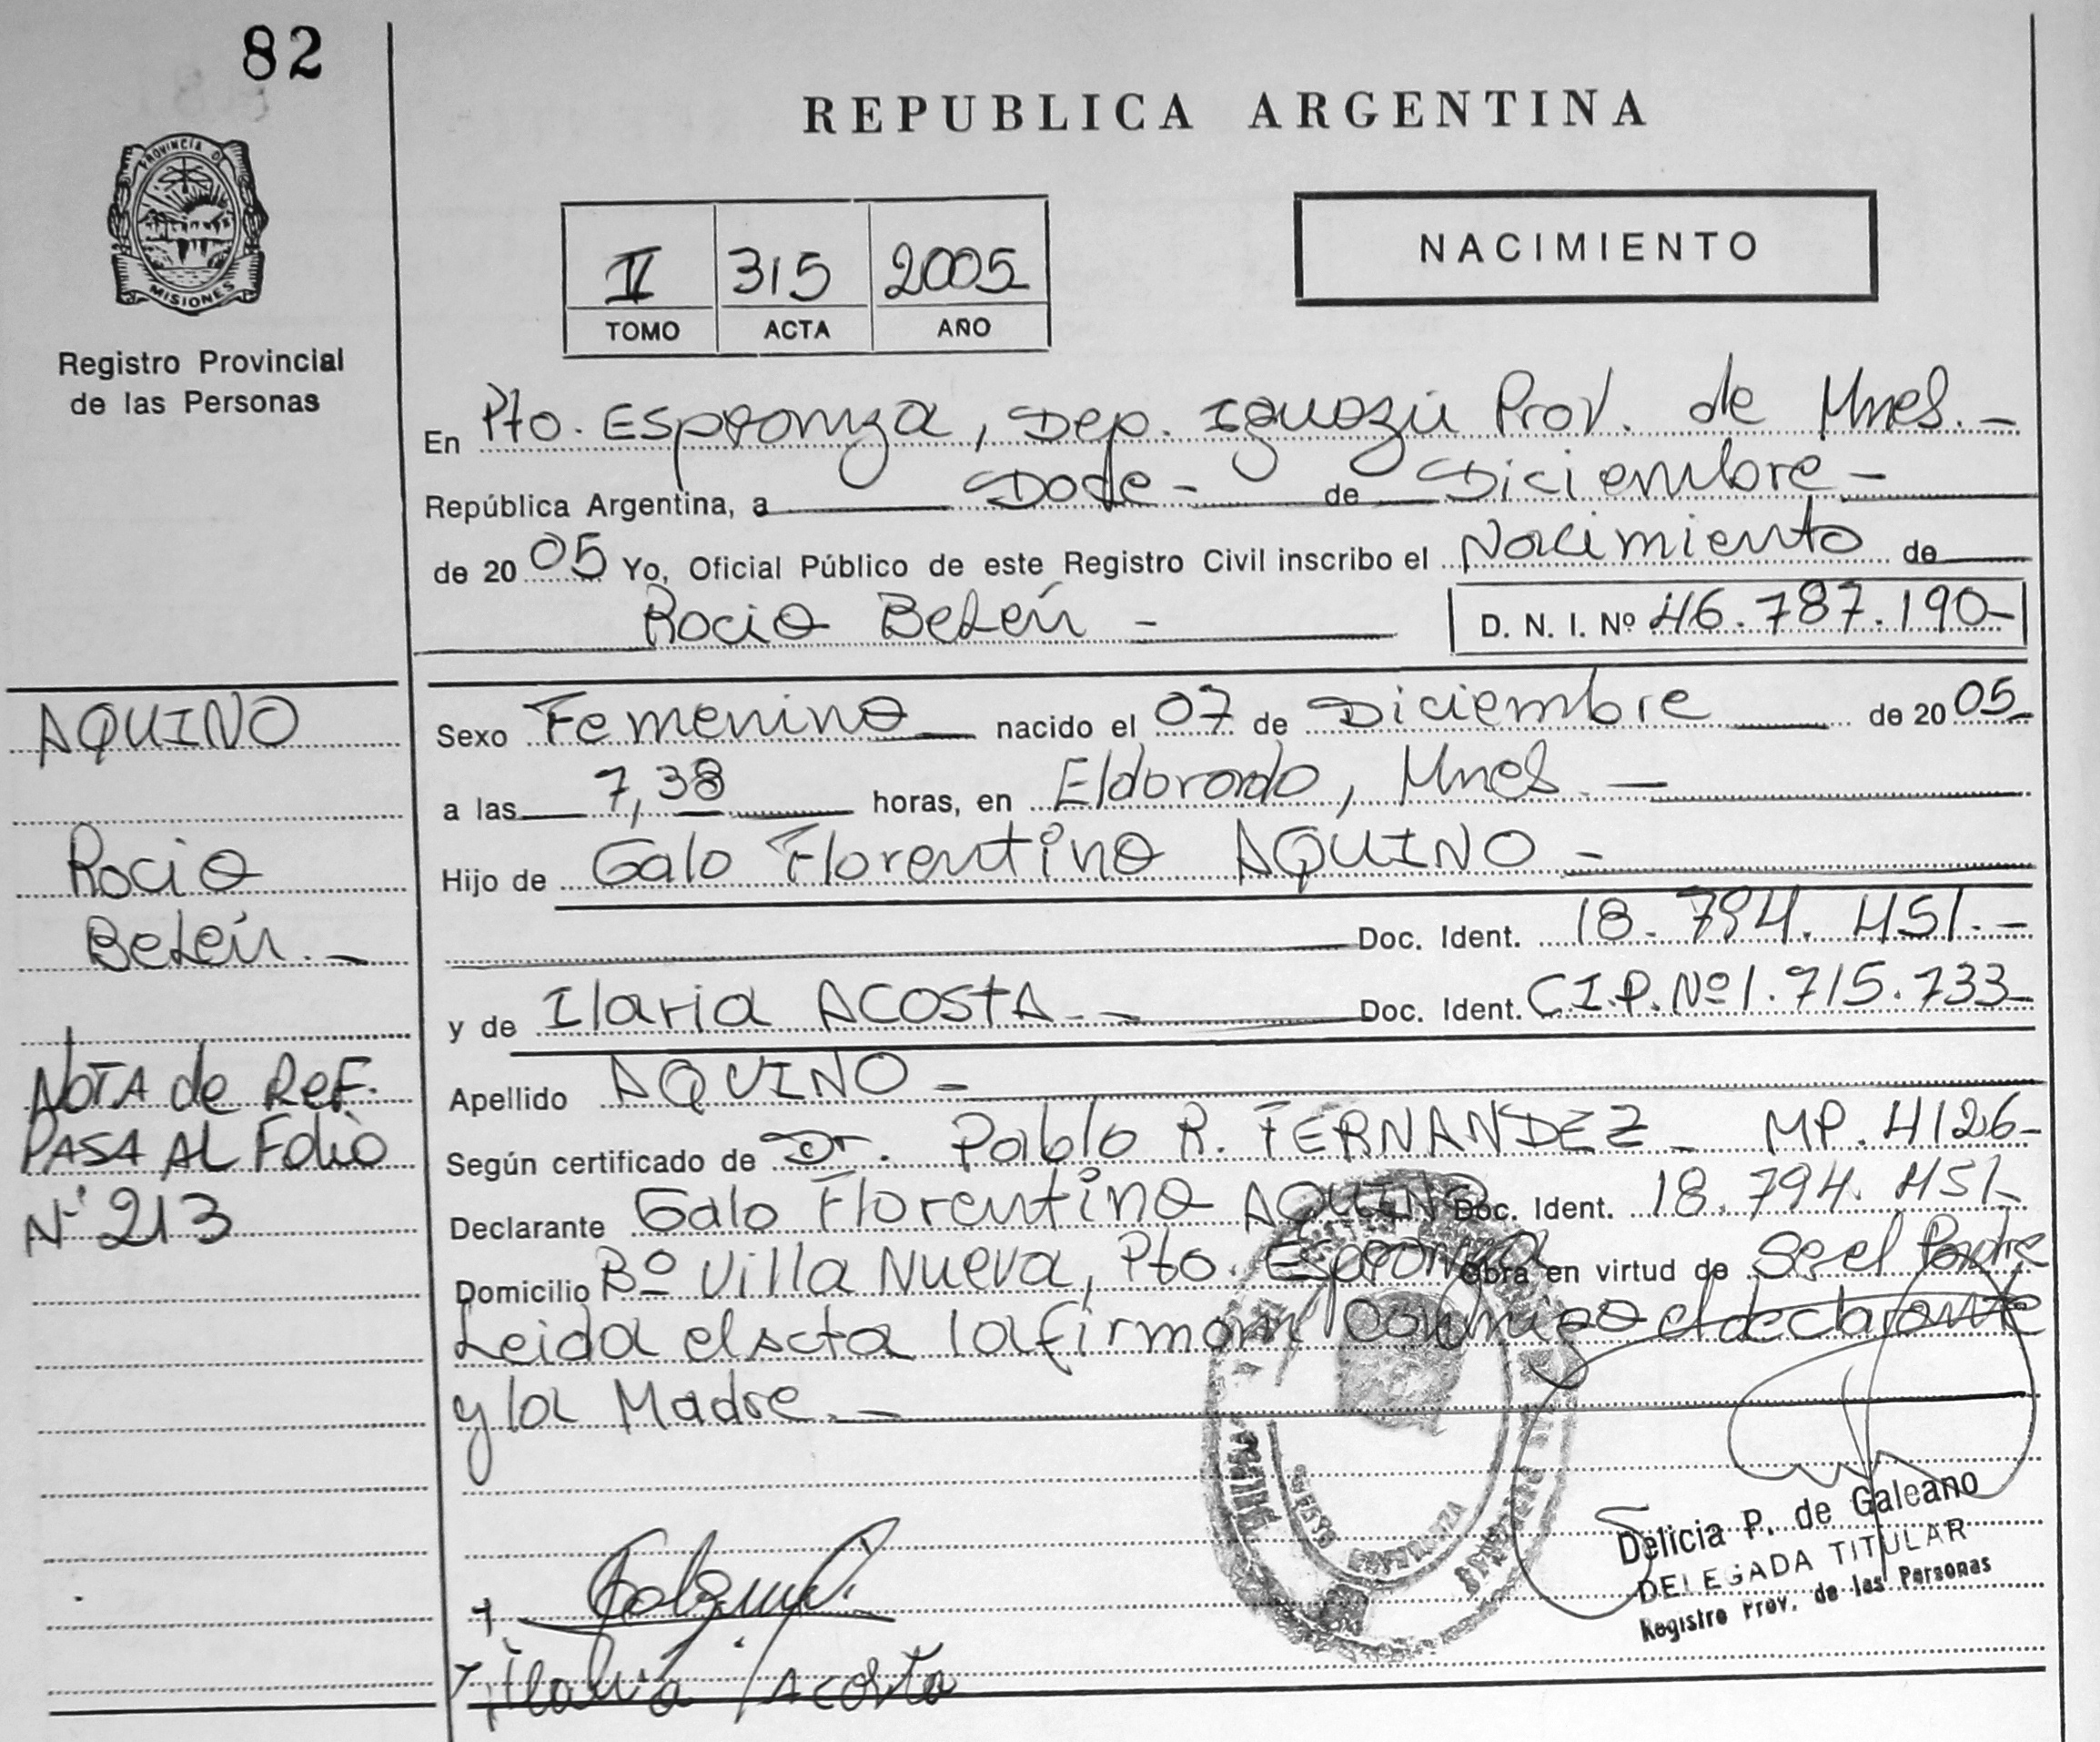 82
REPUBLICA ARGENTINA
PROVINCIA DE
MISIONES
Registro Provincial
de las Personas
II 315 2005
TOMO ACTA AÑO
NACIMIENTO
En Pto. Esperanza, Dep. Iguazú Prov. de Mnes.-
República Argentina, a Doce - de Diciembre -
de 2005 Yo, Oficial Público de este Registro Civil inscribo el Nacimiento de
Rocio Belén -
D. N. I. Nº 46.787.190-
AQUINO
Rocio
Belén.-
NOTA de REF.
PASA AL Folio
Nº 213
Sexo Femenino nacido el 07 de Diciembre de 2005
a las 7,38 horas, en Eldorado, Mnes. -
Hijo de Galo Florentino AQUINO -
Doc. Ident. 18.794.451.-
y de Ilaria ACOSTA.- Doc. Ident. C.I.P. Nº 1.715.733-
Apellido AQUINO -
Según certificado de Dr. Pablo R. FERNANDEZ - MP. 4126-
Declarante Galo Florentino AQUINO Doc. Ident. 18.794.451-
Domicilio Bº Villa Nueva, Pto. Esperanza Obra en virtud de Ser el Padre
Leida el acta la firman conmigo el declarante
y la Madre.-
Delicia P. de Galeano
DELEGADA TITULAR
Registro Prov. de las Personas
Ilaria Acosta